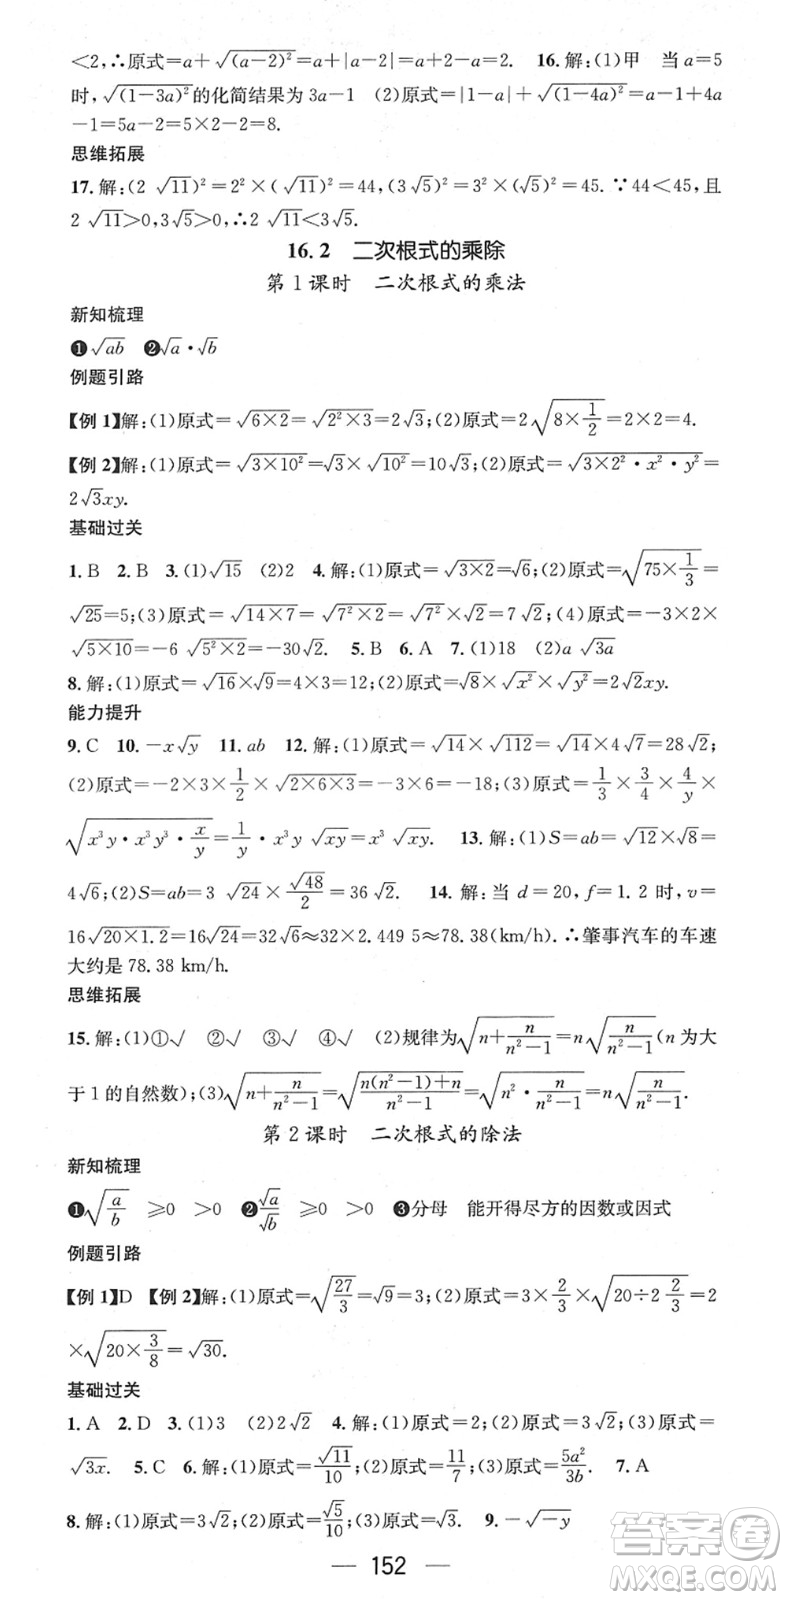 <2,∴原式=a+√(a-2)²=a+|a-2|=a+2-a=2. 16.解:(1)甲 当a=5
时,√(1-3a)²的化简结果为3a-1 (2)原式=|1-a|+√(1-4a)²=a-1+4a
-1=5a-2=5×2-2=8.
思维拓展
17.解:(2√11)²=2²×(√11)²=44,(3√5)²=3²×(√5)²=45.∵44<45,且
2√11>0,3√5>0,∴2√11<3√5.
16.2 二次根式的乘除
第1课时 二次根式的乘法
新知梳理
❶√ab ❷√a·√b
例题引路
【例1】解:(1)原式=√(6×2)=√(2²×3)=2√3;(2)原式=2√(8×1/2)=2×2=4.
【例2】解:(1)原式=√(3×10²)=√3×√10²=10√3;(2)原式=√(3×2²·x²·y²)=
2√3xy.
基础过关
1.B 2.B 3.(1)√15 (2)2 4.解:(1)原式=√(3×2)=√6;(2)原式=√(75×1/3)=
√25=5;(3)原式=√(14×7)=√(7²×2)=√7²×√2=7√2;(4)原式=-3×2×
√(5×10)=-6√(5²×2)=-30√2. 5.B 6.A 7.(1)18 (2)a√3a
8.解:(1)原式=√16×√9=4×3=12;(2)原式=√8×√x²×√y²=2√2xy.
能力提升
9.C 10.-x√y 11.ab 12.解:(1)原式=√14×√112=√14×4√7=28√2;
(2)原式=-2×3×1/2×√(2×6×3)=-3×6=-18;(3)原式=1/3×3/4×4/y×
√(x³y·x³y³·x/y)=1/y·x³y√xy=x³√xy. 13.解:(1)S=ab=√12×√8=
4√6;(2)S=ab=3√24×√48/2=36√2. 14.解:当d=20,f=1.2时,v=
16√(20×1.2)=16√24=32√6≈32×2.449 5≈78.38(km/h).∴肇事汽车的车速
大约是78.38 km/h.
思维拓展
15.解:(1)①√ ②√ ③√ ④√ (2)规律为√(n+n/(n²-1))=n√(n/(n²-1))(n为大
于1的自然数);(3)√(n+n/(n²-1))=√((n(n²-1)+n)/(n²-1))=√(n²·n/(n²-1))=n√(n/(n²-1)).
第2课时 二次根式的除法
新知梳理
❶√(a/b) ≥0 >0 ❷√a/√b ≥0 >0 ❸分母 能开得尽方的因数或因式
例题引路
【例1】D 【例2】解:(1)原式=√(27/3)=√9=3;(2)原式=3×2/3×√(20÷2 2/3)=2
×√(20×3/8)=√30.
基础过关
1.A 2.D 3.(1)3 (2)2√2 4.解:(1)原式=2;(2)原式=3√2;(3)原式=
√3x. 5.C 6.解:(1)原式=√11/10;(2)原式=11/7;(3)原式=5a²/3b. 7.A
8.解:(1)原式=3√2;(2)原式=√5/10;(3)原式=√3. 9.-√-y
— 152 —
答案圈
MXQE.COM